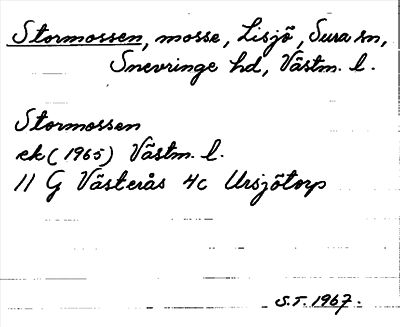 Stormossen, mosse, Lisjö, Sura sn,
Snevringe hd, Västm. l.
Stormossen
ek (1965) Västm. l.
11 G Västerås 4c Ursjötorp
S.T. 1967.